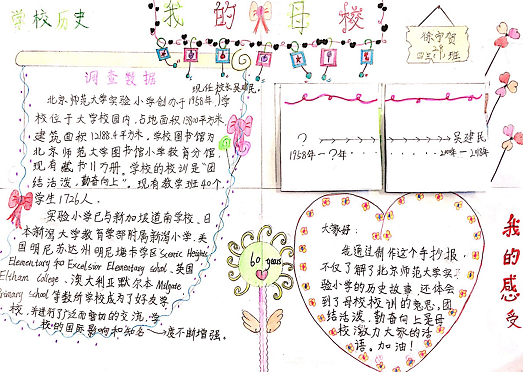 学校历史
我的母校
徐宇贺
四11班
调查数据
现任校长吴建民
北京师范大学实验小学创办于1958年，学
校位于大学校园内，占地面积13800平方米，
建筑面积12188.4平方米，学校图书馆为
北京师范大学图书馆小学教育分馆，
现有藏书11万册。学校的校训是“团
结活泼，勤奋向上”。现有教学班40个，
学生1726人。
实验小学已与新加坡道南学校、日
本新潟大学教育学部附属新潟小学、美
国明尼苏达州明尼塔卡学区Scenic Heights
Elementary for Excelsior Elementary school、英国
Eltham College、澳大利亚默尔本
Primary school等数所学校成为了好友学
校，并进行了广泛而密切的交流，学
校的国际影响和知名→度不断增强。
？
吴建民
1958年—？年
60 years
大家好：
我通过制作这个手抄报，
不仅了解了北京师范大学实
验小学的历史故事，还体会
到了母校校训的意思，团
结活泼，勤奋向上是母
校激力大家的话
语。加油！
我的感受